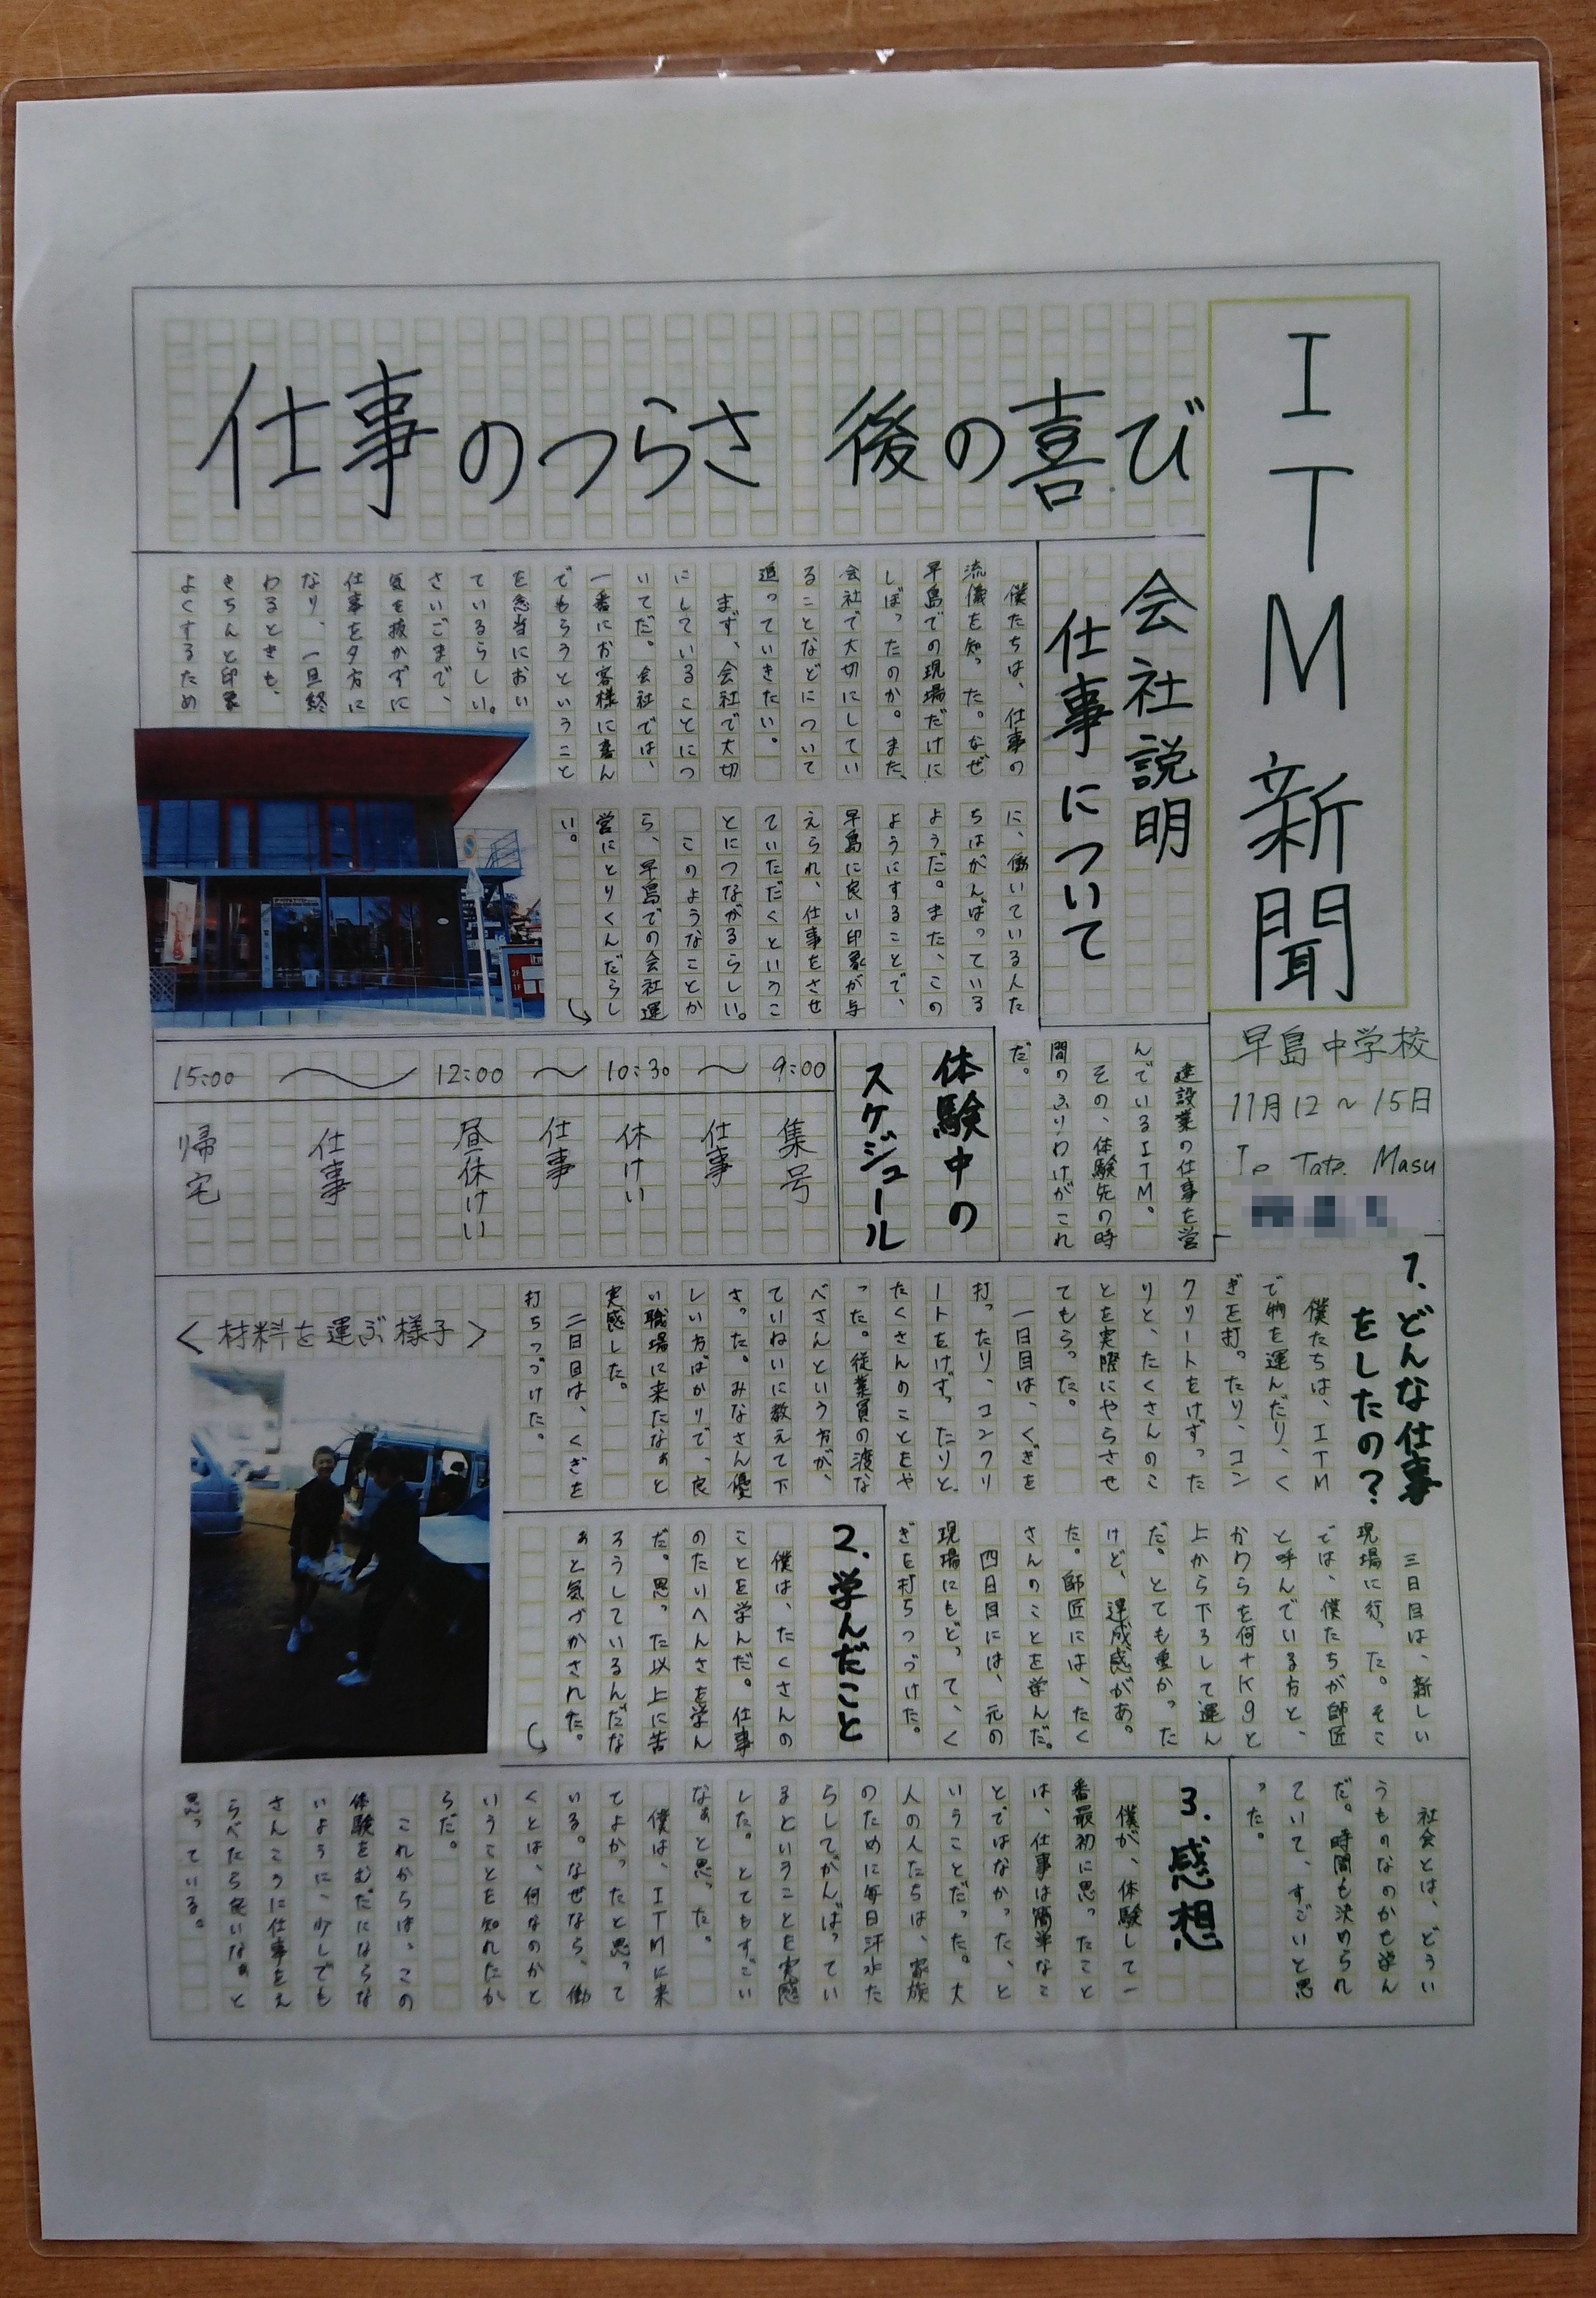 ITM新聞
早島中学校
11月12～15日
Ie Tate Masu
仕事のつらさ 後の喜び
会社説明
仕事について
僕たちは、仕事の
流儀を知った。なぜ
早島での現場だけに
しぼったのか。また、
会社で大切にしてい
ることなどについて
追っていきたい。
まず、会社で大切
にしていることにつ
いてだ。会社では、
一番にお客様に喜ん
でもらうということ
を念当におい
ているらしい。
さいごまで、
気を抜かずに
仕事を夕方に
なり、一旦終
わるときも、
きちんと印象
よくするため
に、働いている人た
ちはがんばっている
ようだ。また、この
ようにすることで、
早島に良い印象が与
えられ、仕事をさせ
ていただくというこ
とにつながるらしい。
このようなことか
ら、早島での会社運
営にとりくんだらし
い。
建設業の仕事を営
んでいるITM。
その、体験先の時
間のふりわけがこれ
だ。
体験中の
スケジュール
9:00 集号
～ 仕事
10:30 休けい
～ 仕事
12:00 昼休けい
～ 仕事
15:00 帰宅
1.どんな仕事
をしたの?
僕たちは、ITM
で物を運んだり、く
ぎを打ったり、コン
クリートをけずった
りと、たくさんのこ
とを実際にやらさせ
てもらった。
一日目は、くぎを
打ったり、コンクリ
ートをけずったりと、
たくさんのことをや
った。従業員の渡な
べさんという方が、
ていねいに教えて下
さった。みなさん優
しい方ばかりで、良
い職場に来たなぁと
実感した。
二日目は、くぎを
打ちつづけた。
<材料を運ぶ様子>
三日目は、新しい
現場に行った。そこ
では、僕たちが師匠
と呼んでいる方と、
かわらを何十kgと
上から下ろして運ん
だ。とても重かった
けど、達成感があっ
た。師匠には、たく
さんのことを学んだ。
四日目には、元の
現場にもどって、く
ぎを打ちつづけた。
2.学んだこと
僕は、たくさんの
ことを学んだ。仕事
のたいへんさを学ん
だ。思った以上に苦
ろうしているんだな
ぁと気づかされた。
社会とは、どうい
うものなのかも学ん
だ。時間も決められ
ていて、すごいと思
った。
3.感想
僕が、体験して一
番最初に思ったこと
は、仕事は簡単なこ
とではなかった、と
いうことだった。大
人の人たちは、家族
のために毎日汗水た
らしてがんばってい
るということを実感
した。とてもすごい
なぁと思った。
僕は、ITMに来
てよかったと思って
いる。なぜなら、働
くとは、何なのかと
いうことを知れたか
らだ。
これからは、この
体験をむだにならな
いように、少しでも
さんこうに仕事をえ
らべたら良いなぁと
思っている。